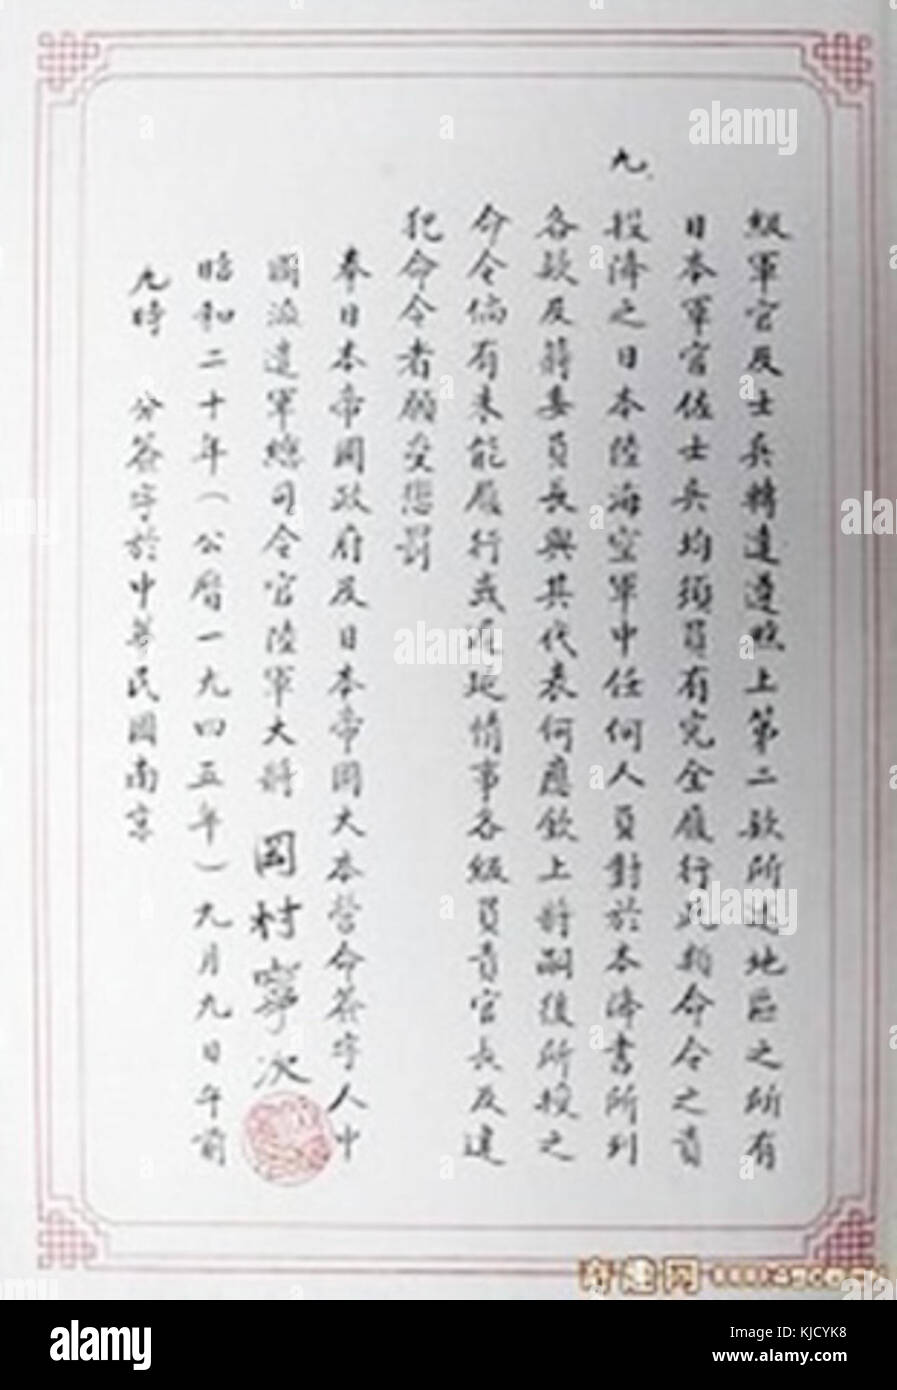 級軍官及士兵轉達遵照上第二款所述地區之所有
日本軍官佐士兵均須負有完全履行此類命令之責
九、投降之日本陸海空軍中任何人員對於本降書所列
各款及蔣委員長與其代表何應欽上將嗣後所授之
命令倘有未能履行或遲延情事各級負責官長及違
犯命令者願受懲罰
奉日本帝國政府及日本帝國大本營命簽字人中
國派遣軍總司令官陸軍大將 岡村寧次
昭和二十年(公曆一九四五年)九月九日午前
九時 分簽字於中華民國南京
alamy
Image ID: KJCYK8
www.alamy.com